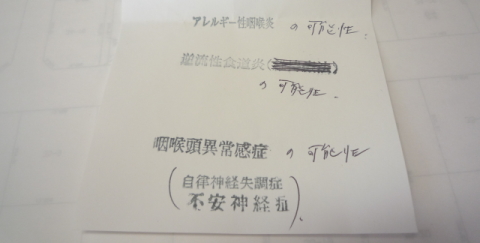 アレルギー性咽喉炎 の 可能性.
逆流性食道炎( )
の 可能性.
咽喉頭異常感症 の 可能性
(自律神経失調症
不安神経症).